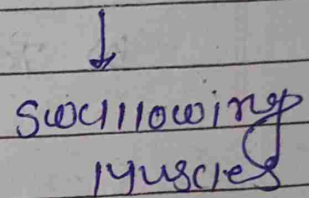 swallowing
muscles